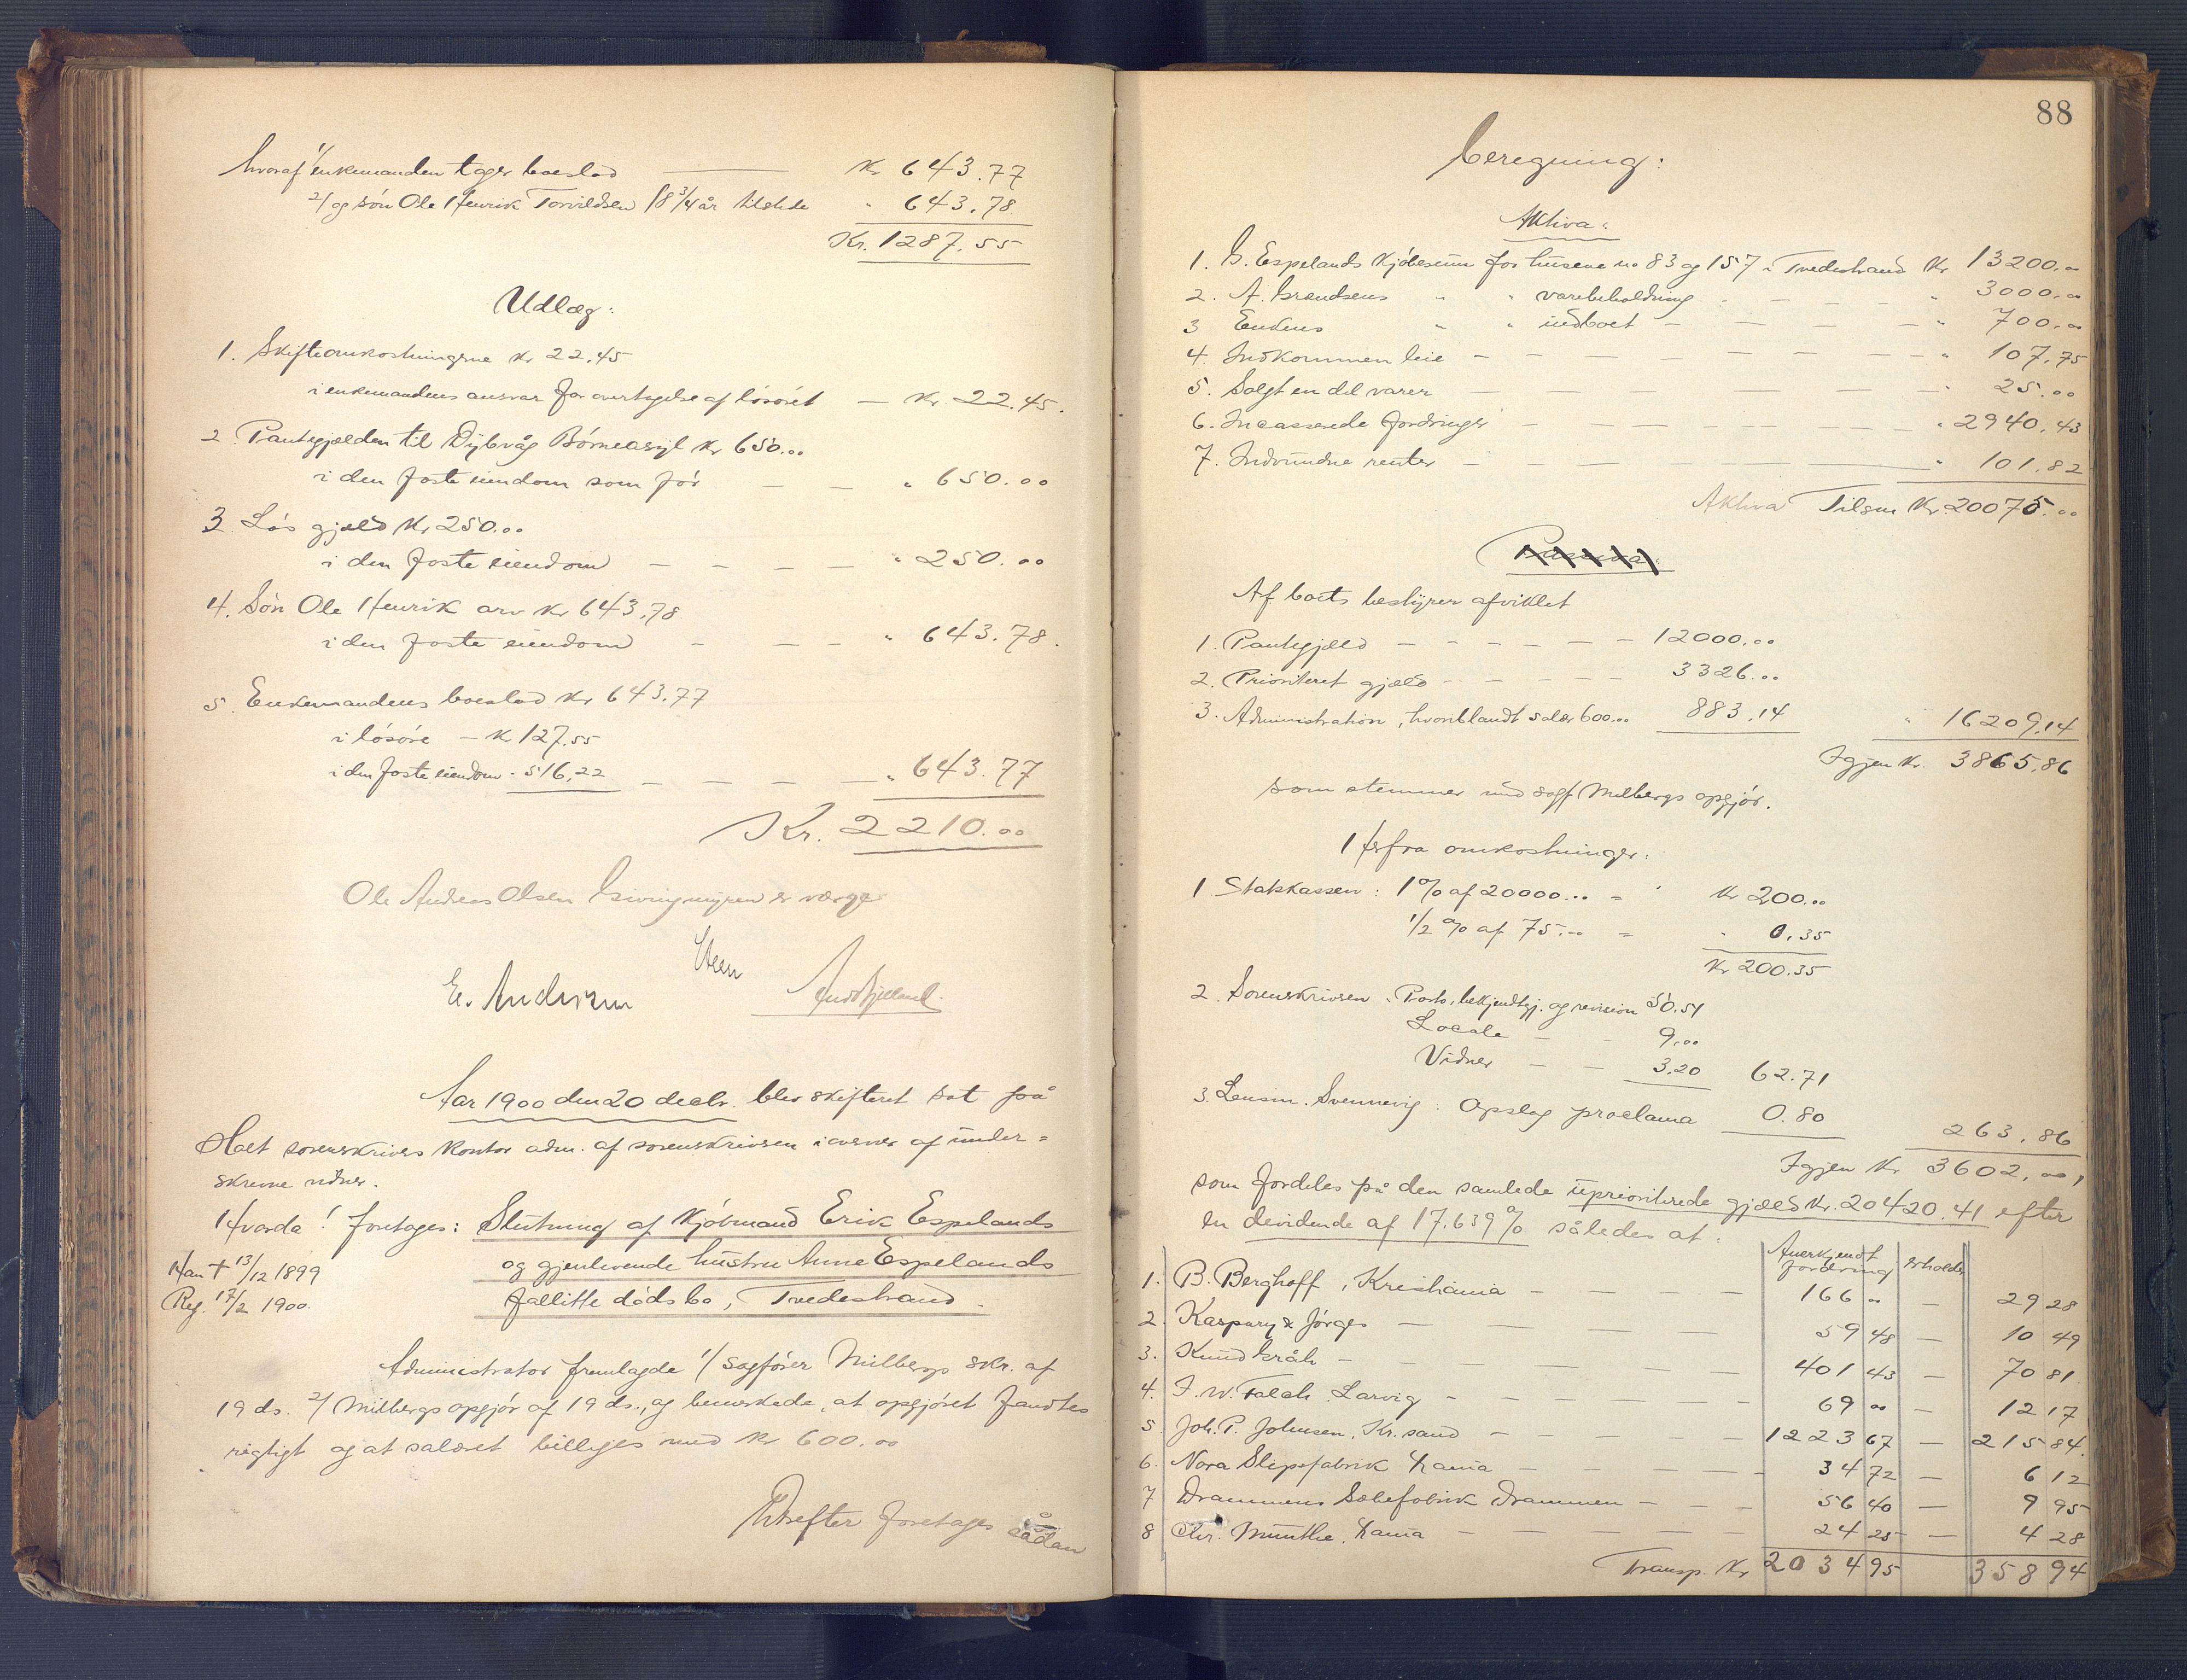 hvoraf 1/ enkemanden tager boeslod — Kr 643.77
2/ og søn Ole Henrik Torvildsen 18 3/4 år tilstede " 643.78
Kr. 1287.55
Udlæg:
1. Skifteomkostningerne Kr 22.45
i enkemandens ansvar for overtagelse af løsøret — Kr. 22.45.
2. Pantegjælden til Dybvåg Børneasyl Kr 650...
i den faste eiendom som før — — " 650.00
3. Løs gjæld Kr 250...
i den faste eiendom — — — — " 250.00
4. Søn Ole Henrik arv Kr 643,78
i den faste eiendom - — — " 643.78.
5. Enkemandens boeslod Kr 643.77
i løsøre — Kr 127.55
i den faste eiendom - 516,22 — — — — " 643.77
Kr. 2210.00
Ole Andreas Olsen er værge
E. Andersen Steen
Aar 1900 den 20 decbr. blev skifteret sat på
Holt sorenskrivers kontor adm. af sorenskriveren i overvær af under=
skrevne vidner.
Hvorda! foretoges: Slutning af Kjøbmand Erik Espelands
Han † 13/12 1899 og gjenlevende hustru Anne Espelands
Reg. 17/2 1900. fallitte dødsbo, Tvedestrand.
Administrator fremlagde 1/ sagfører Milbergs skr. af
19 ds. 2/ Milbergs opgjør af 19 ds., og bemerkede, at opgjøret fandtes
rigtigt og at salæret billiges med Kr 600.00
Derefter foretoges sådan
88
beregning:
Aktiva:
1. G. Espelands kjøbesum for husene no 83 og 157 i Tvedestrand Kr 13200...
2. A. " " varebeholdning - — - - " 3000...
3 Enkens " " indboet — — — — " 700...
4. Indkommen leie — — — — — — " 107,75
5. Solgt en del varer — — — — " 25.00
6. Incasserede fordringer — — — — — " 2940,43
7. Indvundne renter — — — — " 101,82
Aktiva Tilsm Kr. 20075.00
Af boets bestyrer afviklet
1. Pantegjæld — — — — — 12000...
2. Prioriteret gjæld — — — — 3326...
3. Administration, hvoriblandt salær 600... 883,14 " 16209,14
Igjen Kr. 3865,86
som stemmer med sagf. Milbergs opgjør.
Herfra omkostninger:
1 Statskassen: 1% af 20000... = Kr 200...
1/2 % af 75... = " 0,35
Kr 200.35
2. Sorenskriveren: Porto, bekjendtgj. og revision 50.51
Locale — - 9...
Vidner — - 3.20 62.71
3. Lensm. Svennevig: Opslag proclama 0.80
263,86
Igjen Kr 3602,00,
som fordeles på den samlede uprioriterede gjæld Kr. 20420.41 efter
en dividende af 17.639% således at:
Anerkjendt fordring erholder
1. B. Berghoff, Kristiania — — — — 166 .. — 29 28
2. Kaspary & Jørges — — — 59 48 — 10 49
3. Knud — — — — 401 43 — 70 81.
4. F. W. Falch. Larvig - — — — 69 .. — 12 17
5. Joh. P. Johnsen, Kr.sand — — — — 1223 67 — 215 84.
6. Nora Slipsfabrik Krania — — — 34 72 — 6 12
7 Drammens Sæbefabrik Drammen — — — 56 40 — 9 95
8 Chr. Munthe, Krania — — — 24 25 — 4 28
Transp. Kr 2034 95 358 94